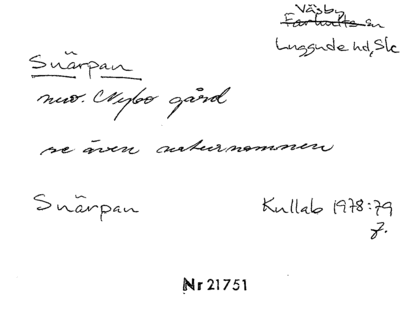 Väsby
Farhults sn
Luggude hd, Sk
Snärpan
nuv. Nybo gård
se även naturnamnen
Snärpan
Kullab 1978:79
f.
Nr 21751